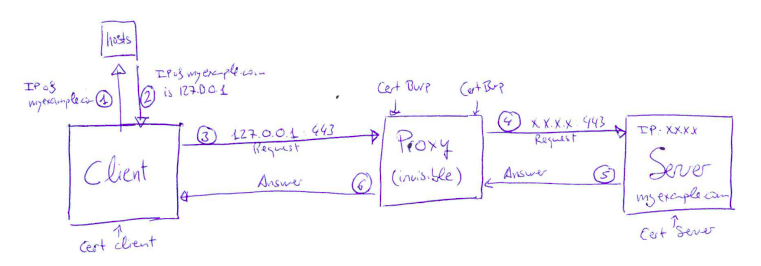 hosts
IP of
myexample.com ①
② IP of myexample.com
is 127.0.0.1
Client
Cert client
③ 127.0.0.1:443
Request
Answer ⑥
Cert Burp Cert Burp
Proxy
(invisible)
④ X.X.X.X:443
Request
Answer ⑤
IP: X.X.X.X
Server
myexample.com
Cert Server